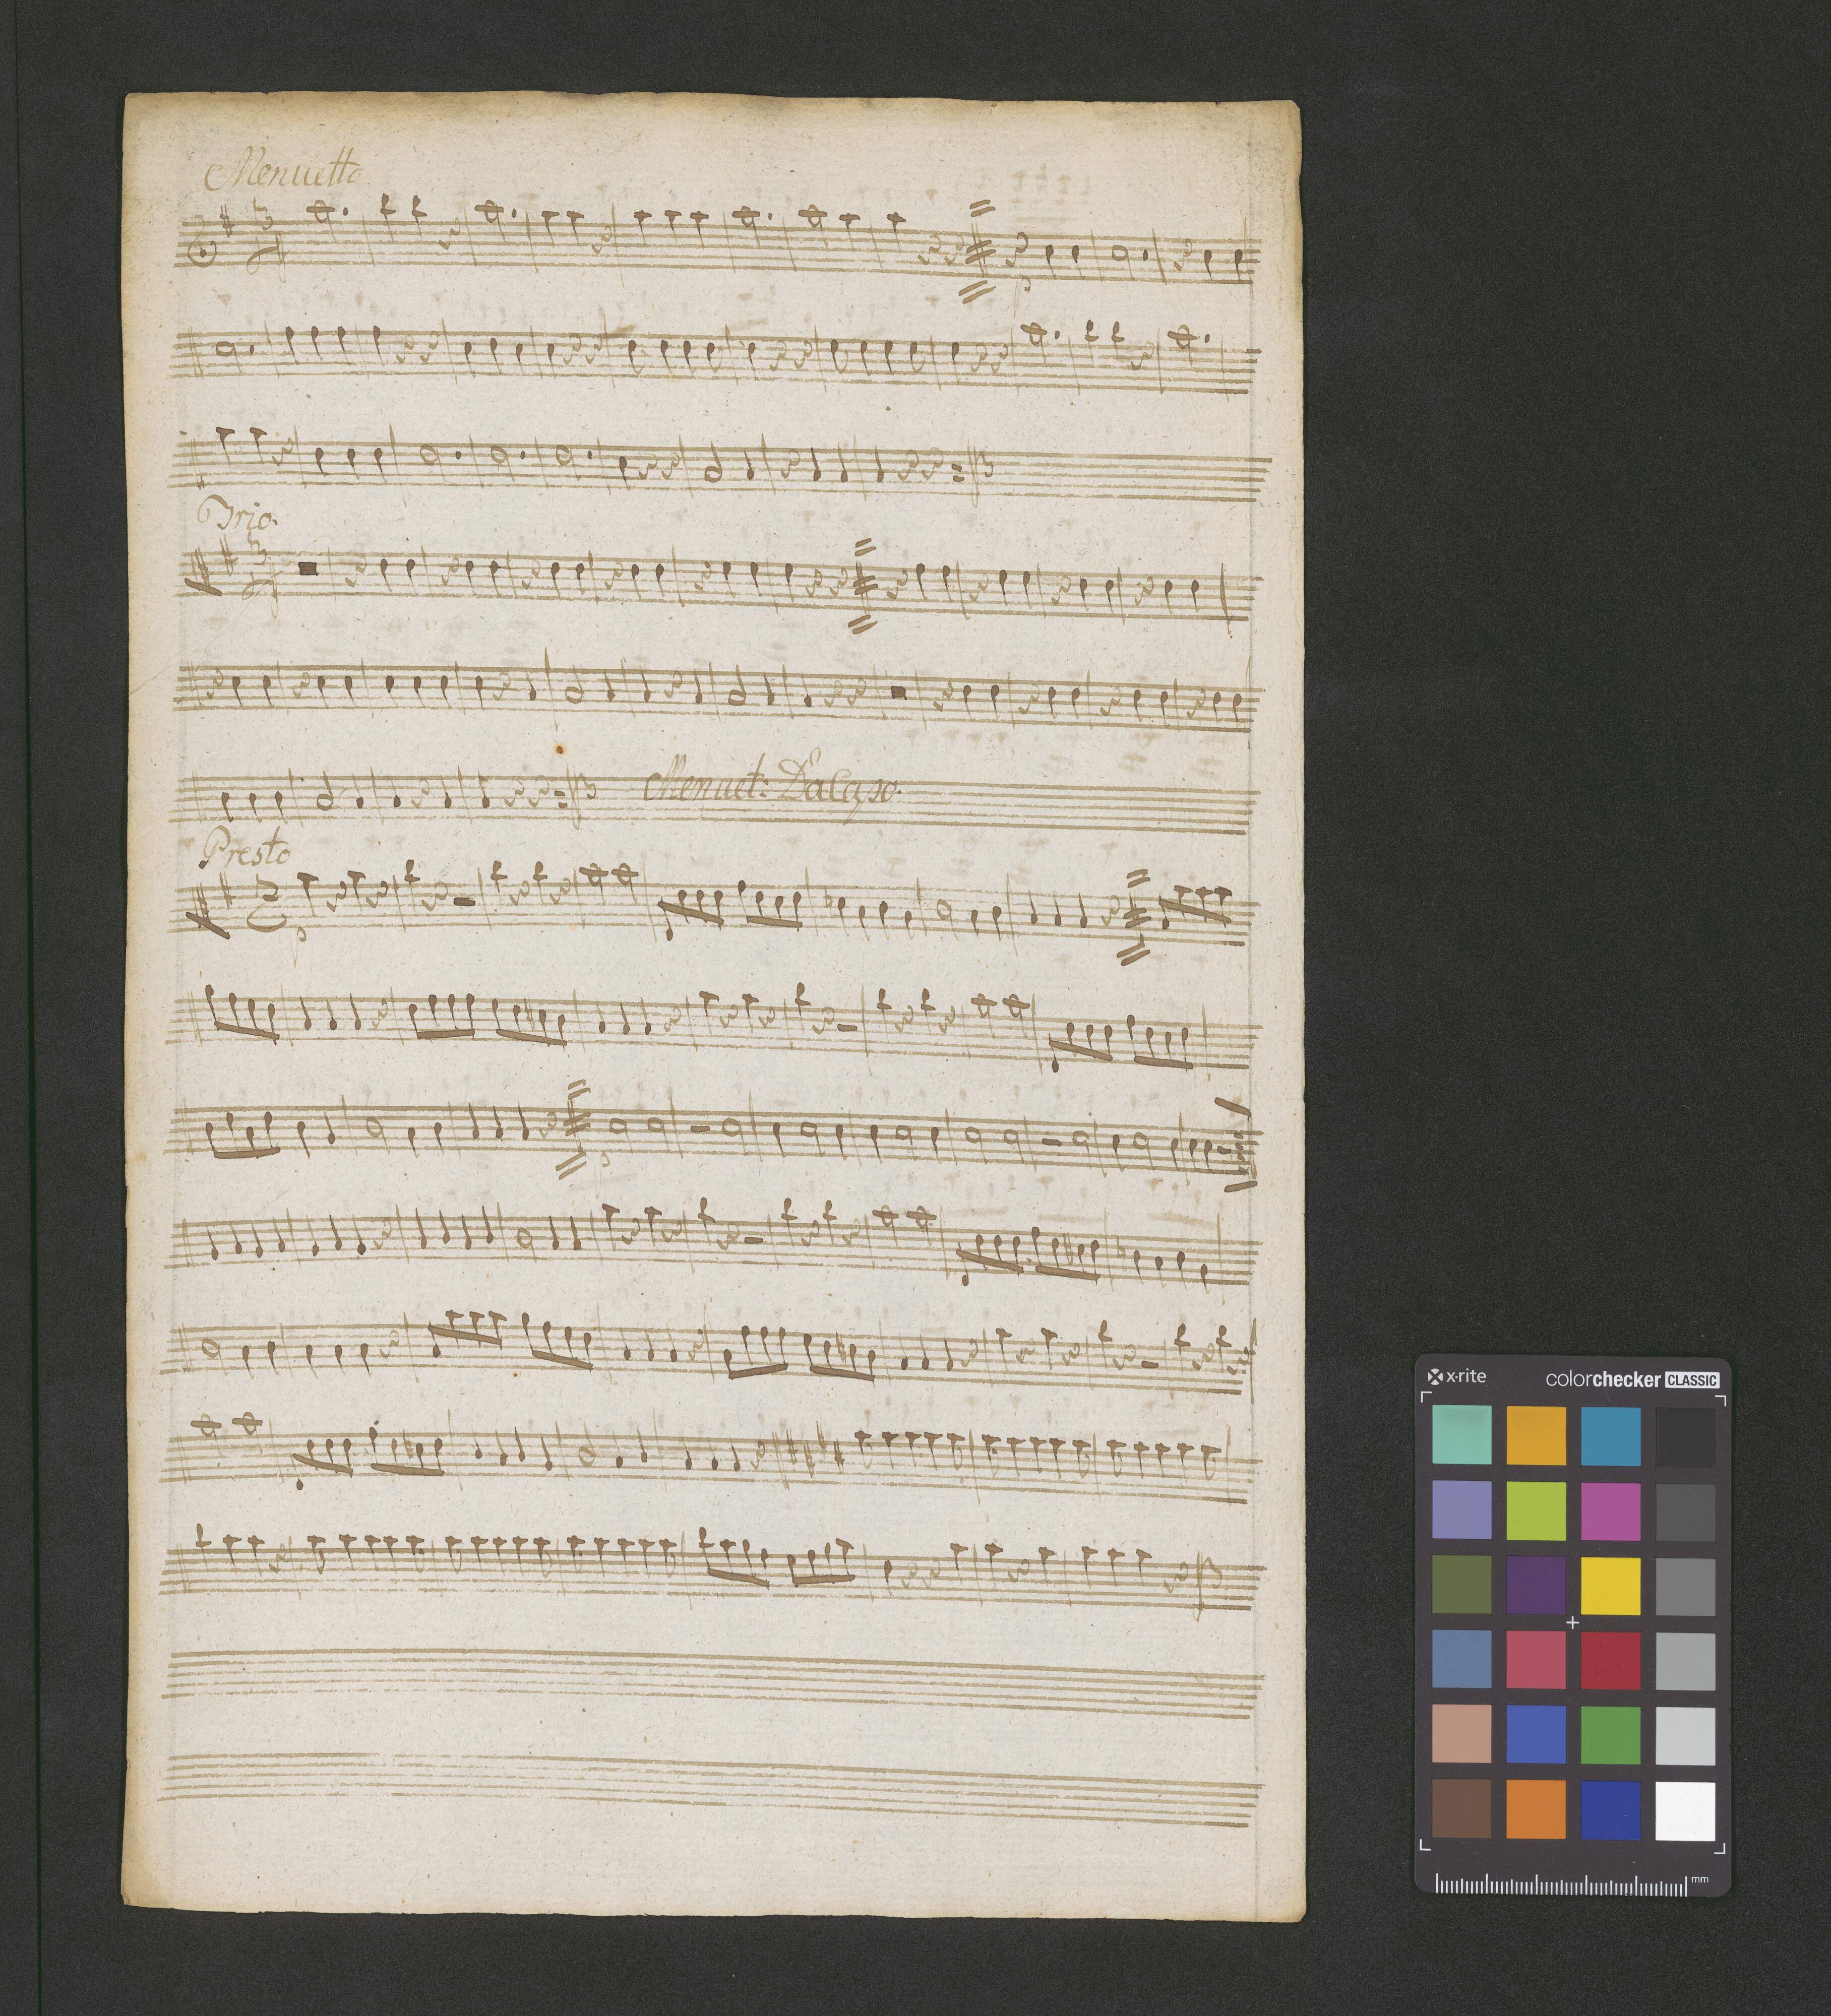 Menuetto
p
Trio.
Menuet: Da Capo.
Presto
p
p
x-rite colorchecker CLASSIC
mm